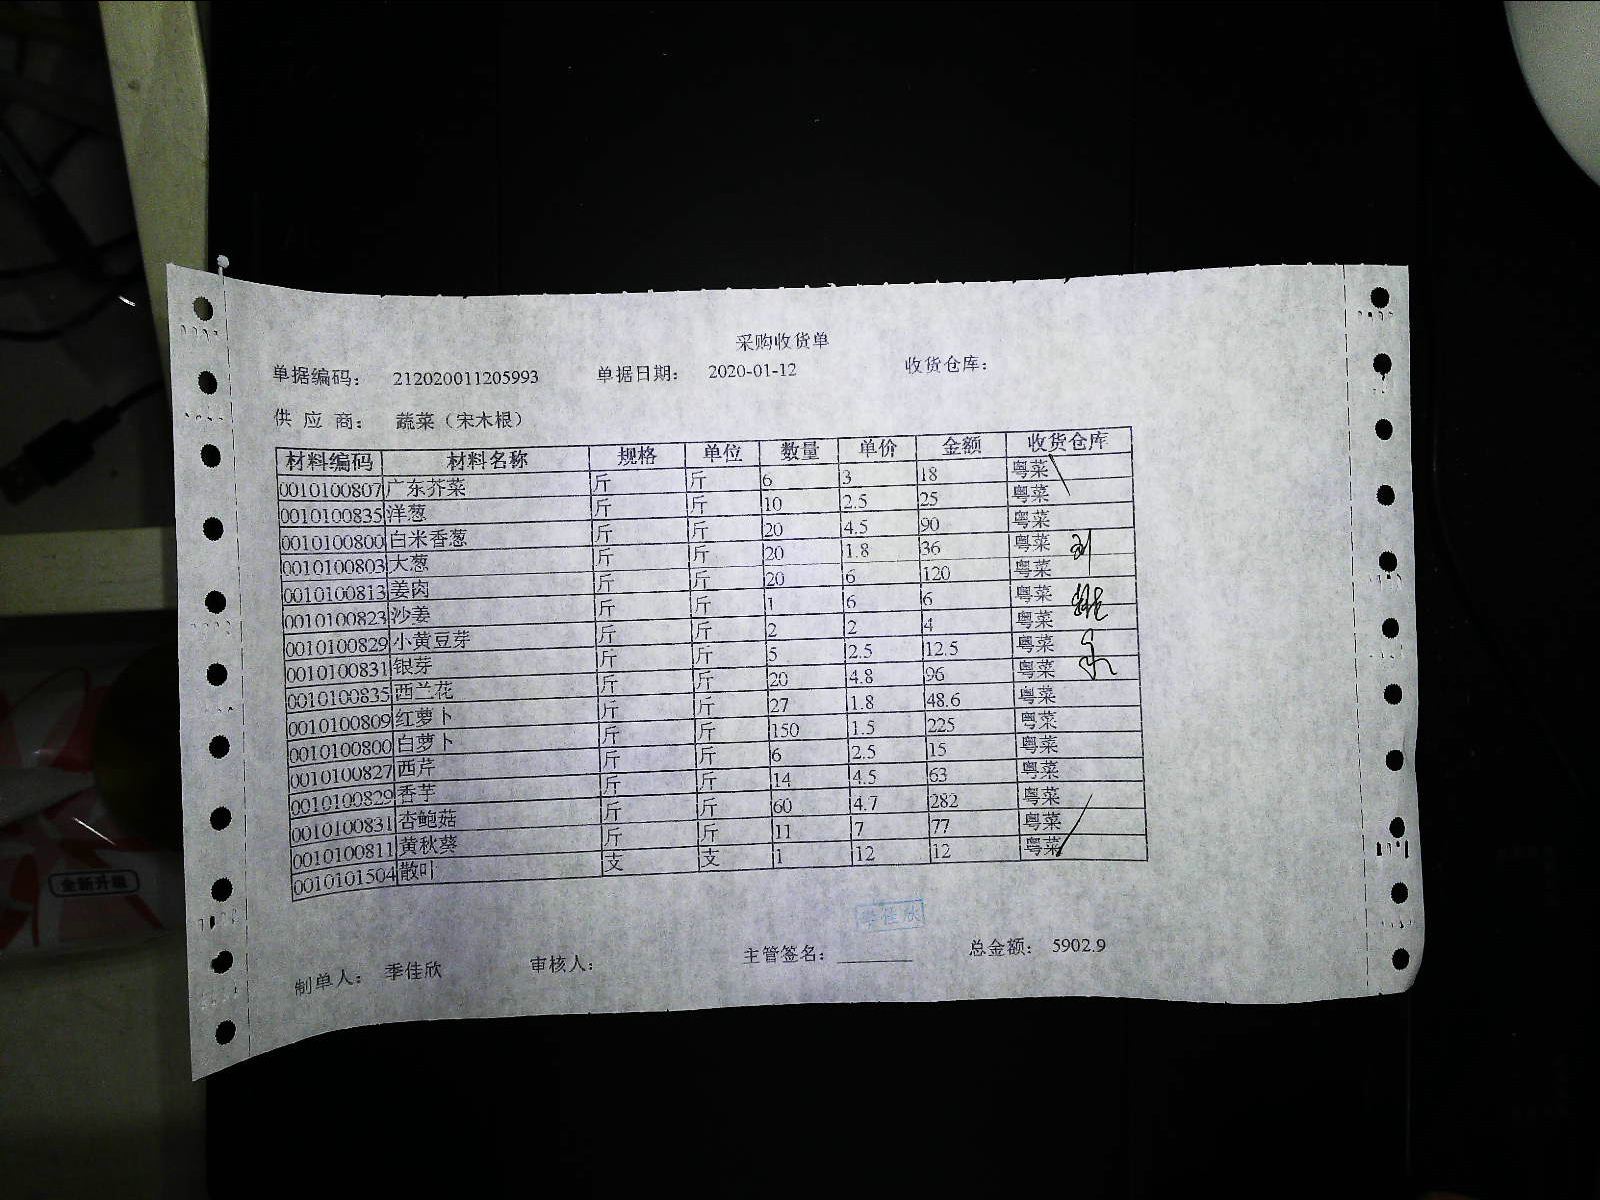 采购收货单
单据编码： 212020011205993 单据日期： 2020-01-12 收货仓库：
供 应 商： 蔬菜（宋木根）
材料编码 材料名称 规格 单位 数量 单价 金额 收货仓库
0010100807 广东芥菜 斤 斤 6 3 18 粤菜
0010100835 洋葱 斤 斤 10 2.5 25 粤菜
0010100800 白米香葱 斤 斤 20 4.5 90 粤菜
0010100803 大葱 斤 斤 20 1.8 36 粤菜
0010100813 姜肉 斤 斤 20 6 120 粤菜
0010100823 沙姜 斤 斤 1 6 6 粤菜
0010100829 小黄豆芽 斤 斤 2 2 4 粤菜
0010100831 银芽 斤 斤 5 2.5 12.5 粤菜
0010100835 西兰花 斤 斤 20 4.8 96 粤菜
0010100809 红萝卜 斤 斤 27 1.8 48.6 粤菜
0010100800 白萝卜 斤 斤 150 1.5 225 粤菜
0010100827 西芹 斤 斤 6 2.5 15 粤菜
0010100829 香芋 斤 斤 14 4.5 63 粤菜
0010100831 杏鲍菇 斤 斤 60 4.7 282 粤菜
0010100811 黄秋葵 斤 斤 11 7 77 粤菜
0010101504 散叶 支 支 1 12 12 粤菜
季佳欣
制单人： 季佳欣 审核人： 主管签名： 总金额： 5902.9
全新升级